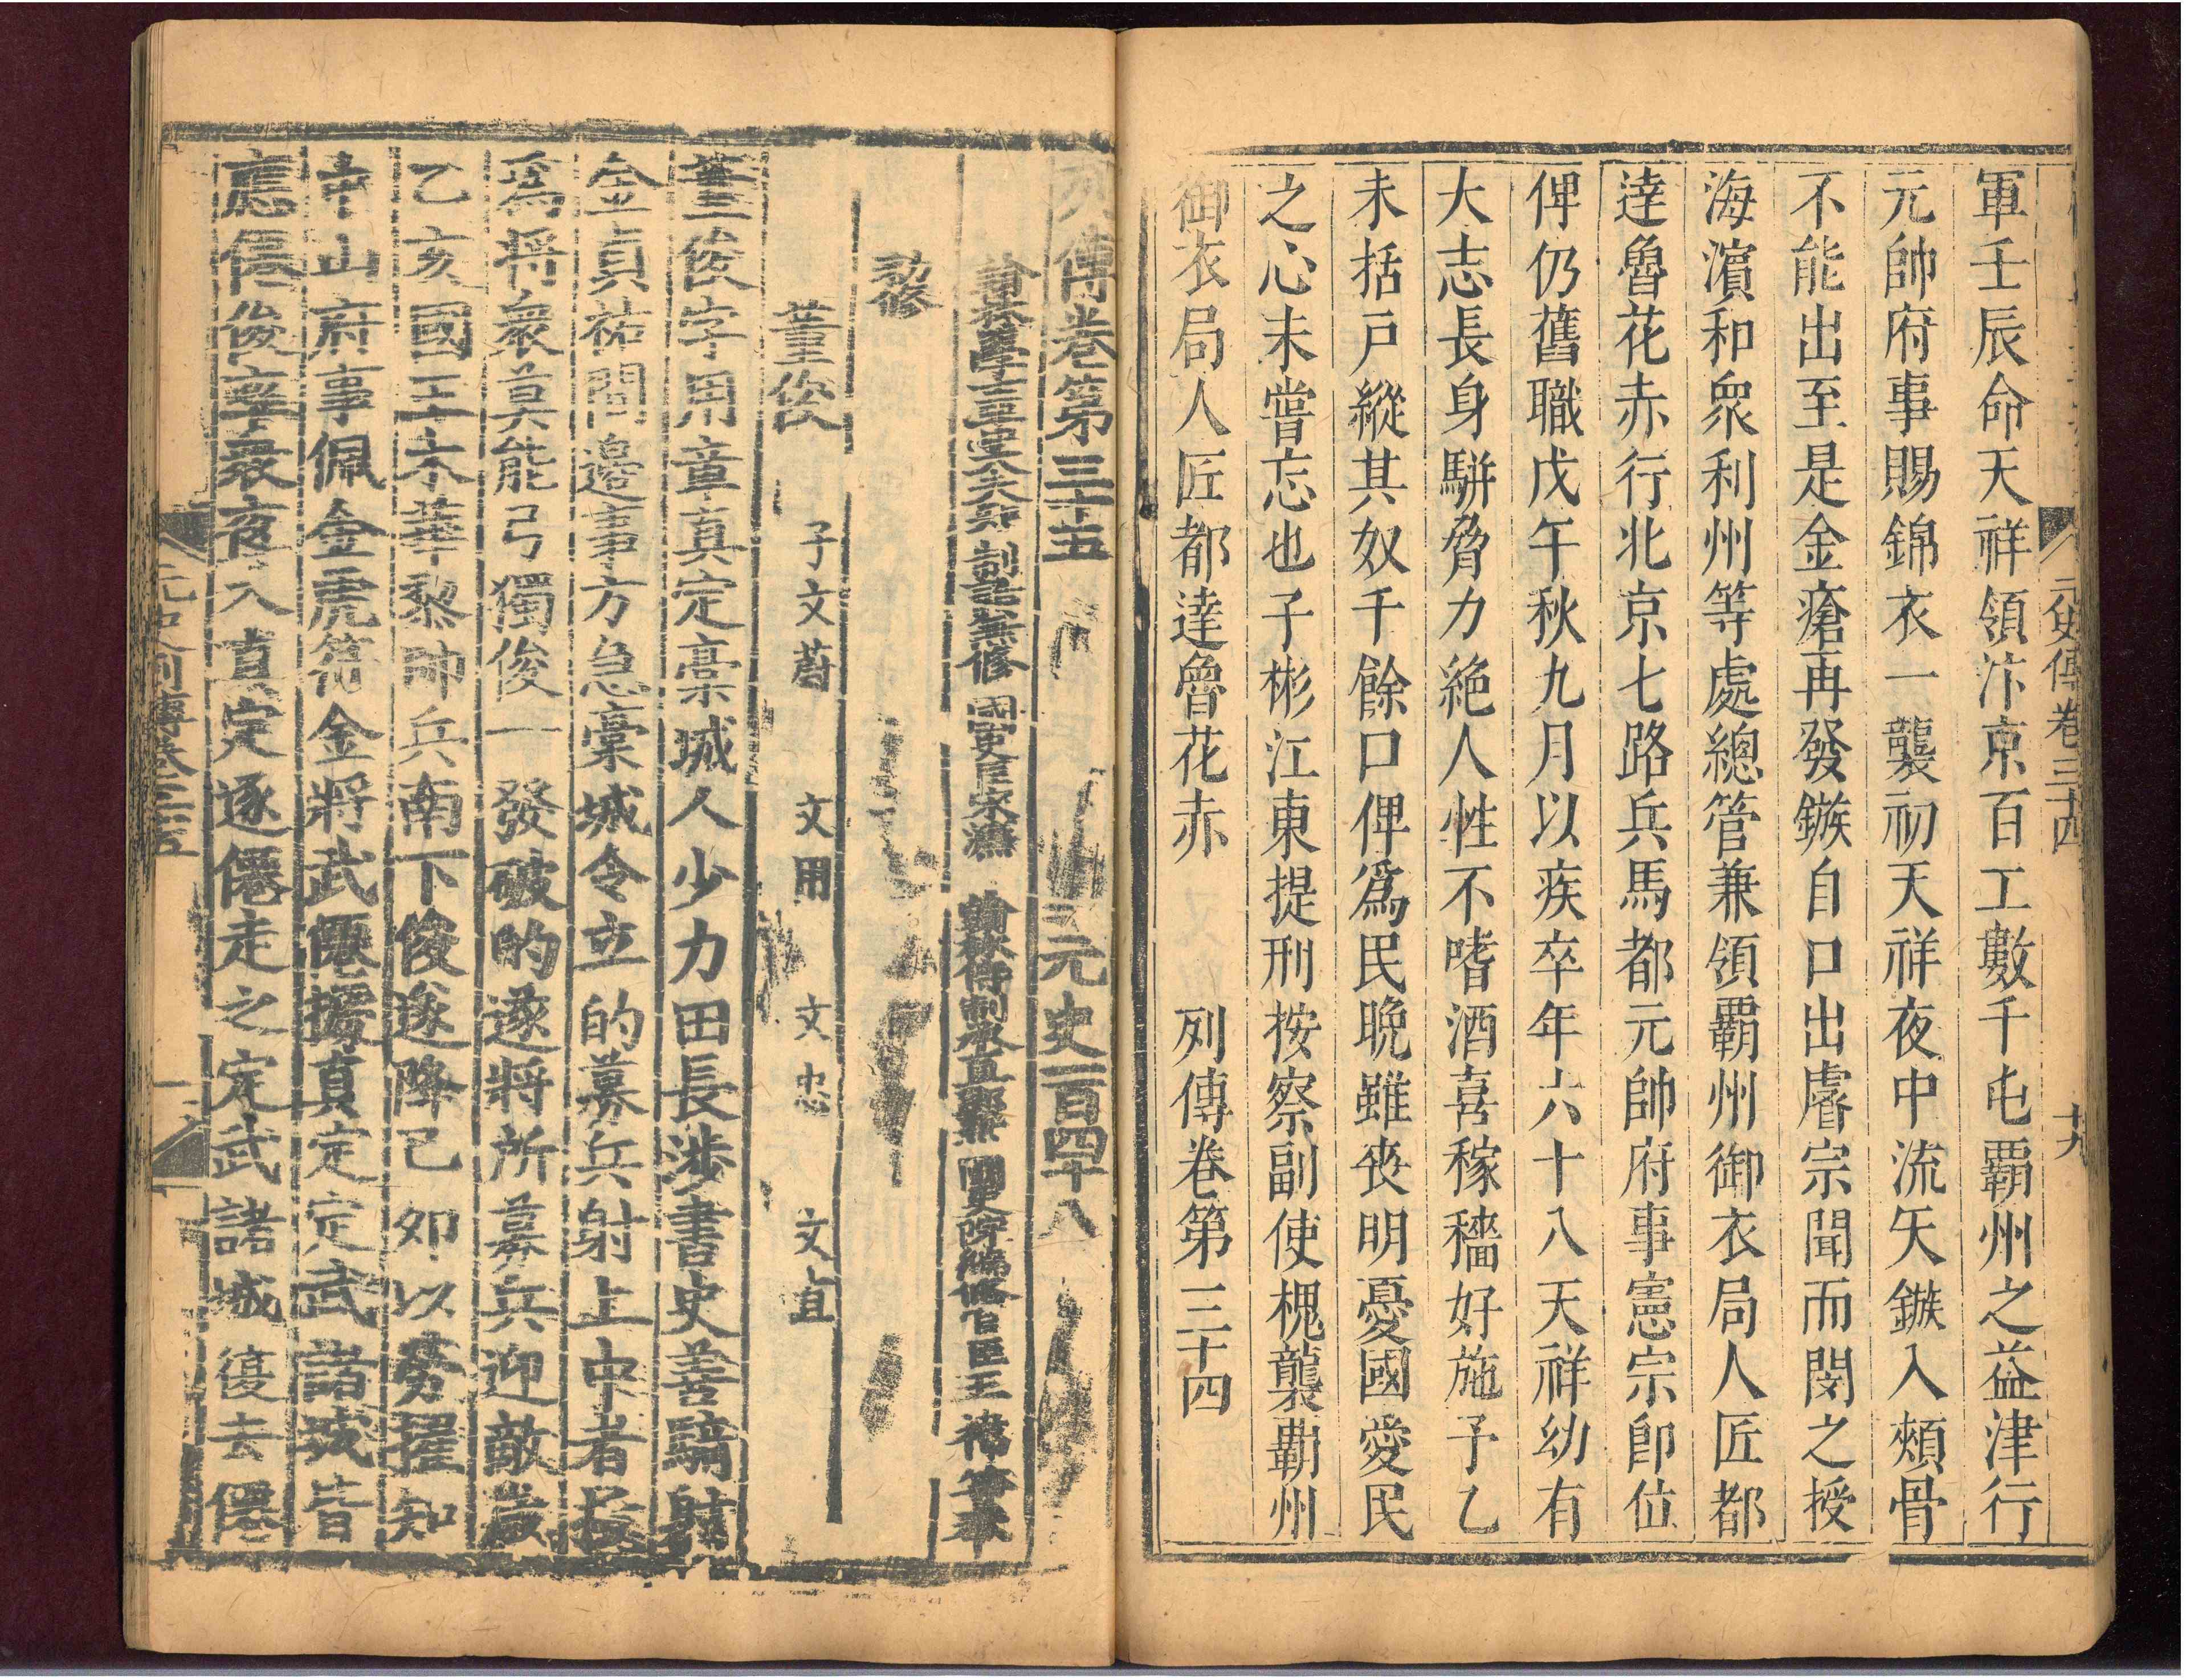 元史列傳卷三十四 十九
軍壬辰命天祥領汴京百工數千屯霸州之益津行
元帥府事賜錦衣一襲初天祥夜中流矢鏃入頰骨
不能出至是金瘡再發鏃自口出睿宗聞而閔之授
海濵和衆利州等處總管兼領霸州御衣局人匠都
逹魯花赤行北京七路兵馬都元帥府事憲宗卽位
俾仍舊職戊午秋九月以疾卒年六十八天祥幼有
大志長身駢脅力絶人性不嗜酒喜稼穡好施予乙
未括戶縱其奴千餘口俾爲民晩雖喪明憂國愛民
之心未嘗忘也子彬江東提刑按察副使槐襲霸州
御衣局人匠都逹魯花赤 列傳卷第三十四
列傳卷第三十五 元史一百四十八
翰林學士亞中大夫知制誥兼修國史臣宋濂 翰林待制承直郎兼國史院編修官臣王褘等奉
勑修
董俊 子文蔚 文用 文忠 文直
董俊字用章真定槀城人少力田長涉書史善騎射
金貞祐間邊事方急槀城令立的募兵射上中者拔
爲將衆莫能弓獨俊一發破的遂將所募兵迎敵歲
乙亥國王木華黎帥兵南下俊遂降己卯以勞擢知
中山府事佩金虎符金將武僊據真定定武諸城皆
應僊俊率衆夜入真定逐僊走之定武諸城復去僊
元史列傳卷三十五 一